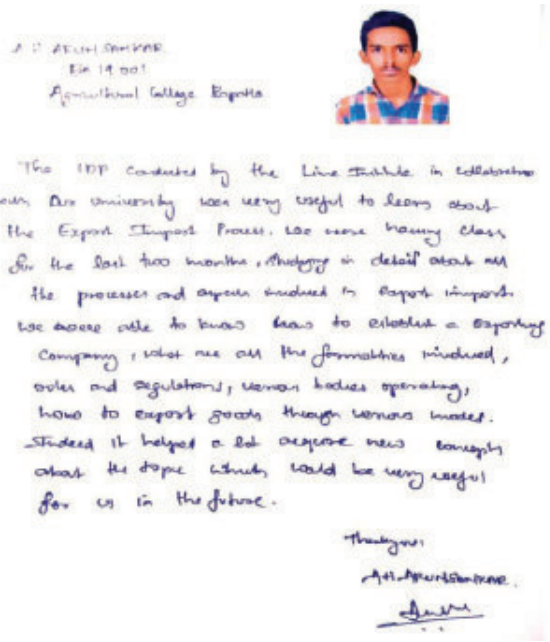 A H ARUN SANKAR
19 001
Agricultural College Bapatla
The IDP conducted by the Line Institute in collaboration
with Our University was very useful to learn about
the Export Import Process. We were having class
for the last two months, studying in detail about all
the processes and aspects involved in Export import.
We were able to know how to establish a exporting
Company, what are all the formalities involved,
rules and regulations, various bodies operating,
how to export goods through various modes.
Indeed it helped a lot acquire new concepts
about the topic which would be very useful
for us in the future.
Thankyou
A.H. ARUN SANKAR.